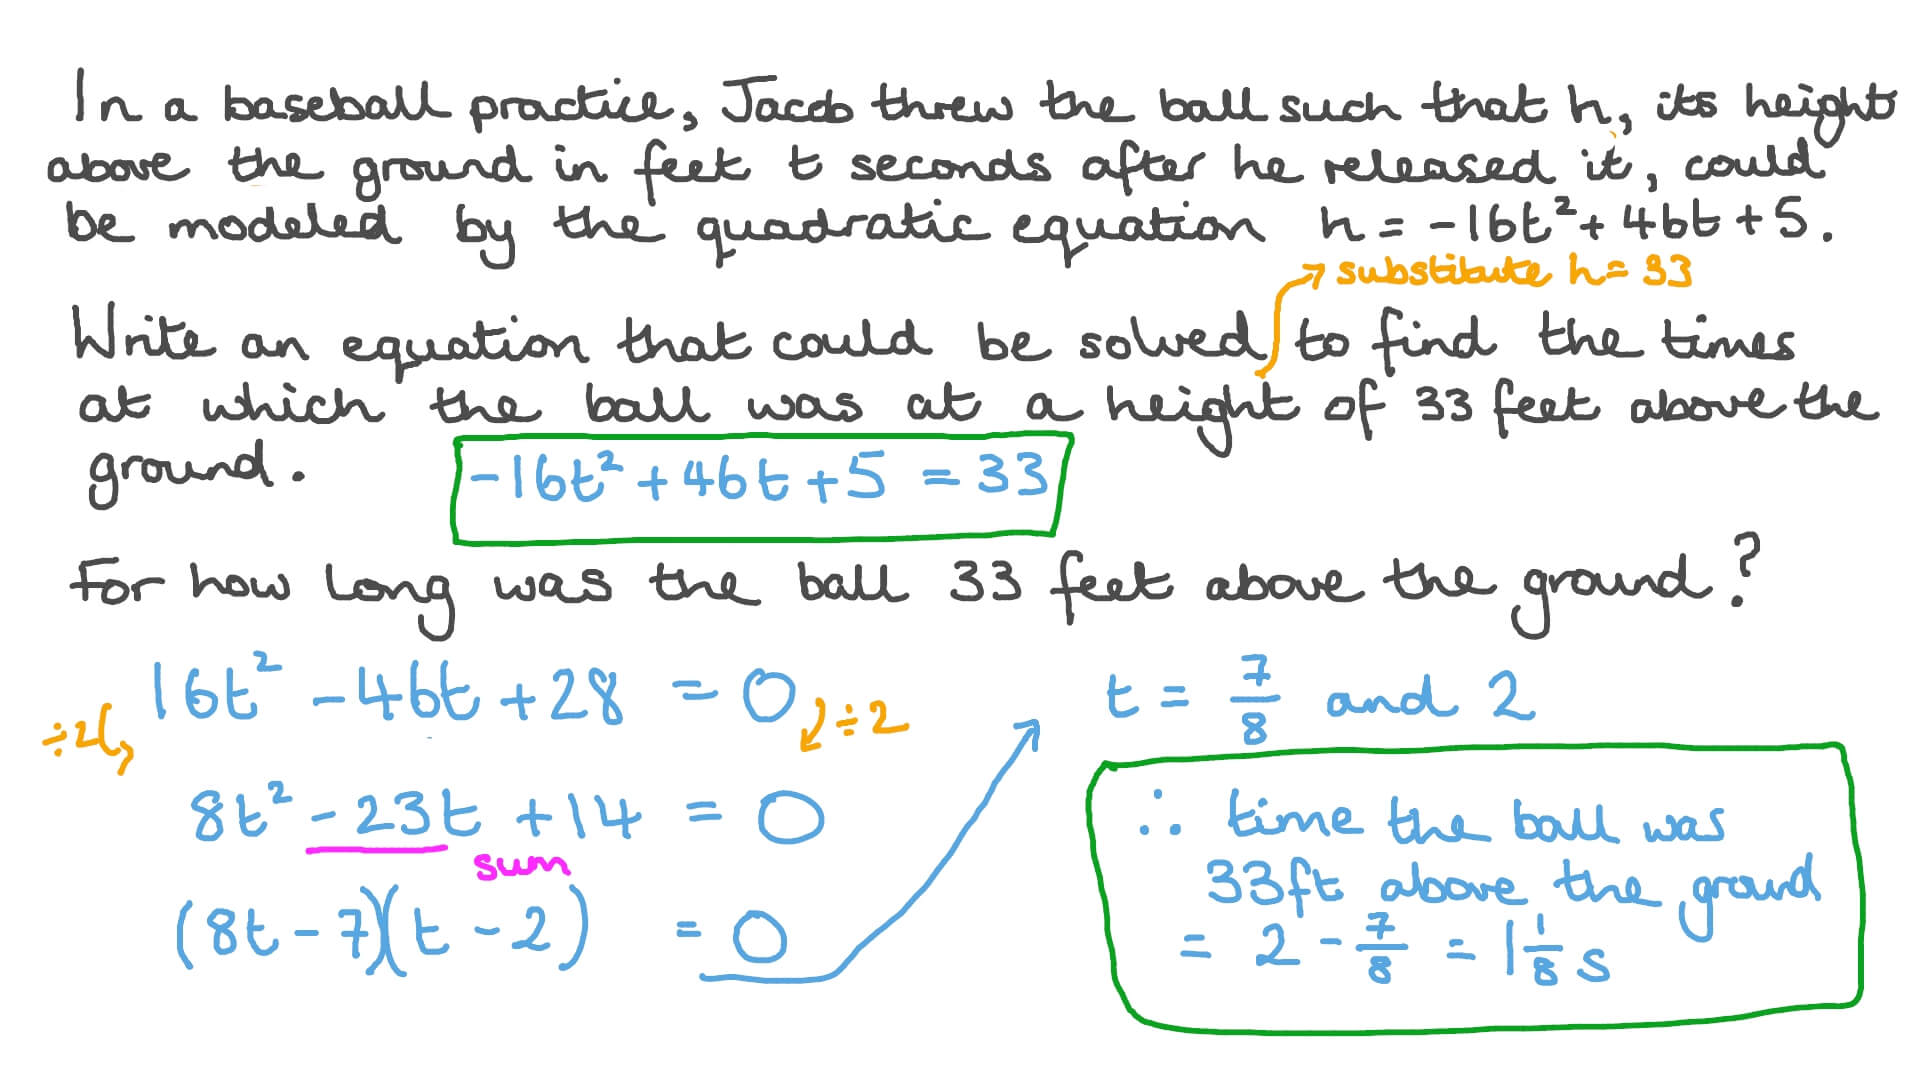 In a baseball practice, Jacob threw the ball such that h, its height
above the ground in feet t seconds after he released it, could
be modeled by the quadratic equation h = -16t² + 46t + 5.
substitute h = 33
Write an equation that could be solved to find the times
at which the ball was at a height of 33 feet above the
ground.
-16t² + 46t + 5 = 33
For how long was the ball 33 feet above the ground?
16t² - 46t + 28 = 0
÷2 ÷2
8t² - 23t + 14 = 0
sum
(8t - 7)(t - 2) = 0
t = 7/8 and 2
∴ time the ball was
33ft above the ground
= 2 - 7/8 = 1 1/8 s